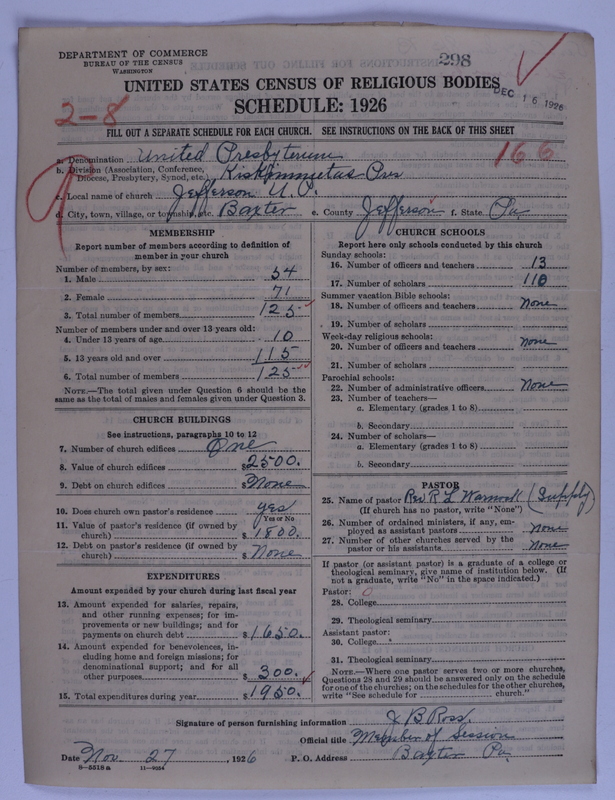 DEPARTMENT OF COMMERCE
BUREAU OF THE CENSUS
WASHINGTON
298
UNITED STATES CENSUS OF RELIGIOUS BODIES
DEC 16 1926
SCHEDULE: 1926
2-8
FILL OUT A SEPARATE SCHEDULE FOR EACH CHURCH. SEE INSTRUCTIONS ON THE BACK OF THIS SHEET
166
a. Denomination United Presbyterian
b. Division (Association, Conference, Diocese, Presbytery, Synod, etc.) Kiskiminetas Pres
c. Local name of church Jefferson U.P.
d. City, town, village, or township, etc. Baxter e. County Jefferson f. State Pa
MEMBERSHIP
Report number of members according to definition of
member in your church
Number of members, by sex:
1. Male 54
2. Female 71
3. Total number of members 125
Number of members under and over 13 years old:
4. Under 13 years of age 10
5. 13 years old and over 115
6. Total number of members 125
NOTE.—The total given under Question 6 should be the
same as the total of males and females given under Question 3.
CHURCH BUILDINGS
See instructions, paragraphs 10 to 12
7. Number of church edifices One
8. Value of church edifices $2500.
9. Debt on church edifices $None
10. Does church own pastor's residence? yes
Yes or No
11. Value of pastor's residence (if owned by
church) $1800.
12. Debt on pastor's residence (if owned by
church) $None
EXPENDITURES
Amount expended by your church during last fiscal year
13. Amount expended for salaries, repairs,
and other running expenses; for im-
provements or new buildings; and for
payments on church debt $1650.
14. Amount expended for benevolences, in-
cluding home and foreign missions; for
denominational support; and for all
other purposes $300.
15. Total expenditures during year $1950.
CHURCH SCHOOLS
Report here only schools conducted by this church
Sunday schools:
16. Number of officers and teachers 13
17. Number of scholars 110
Summer vacation Bible schools:
18. Number of officers and teachers None
19. Number of scholars
Week-day religious schools:
20. Number of officers and teachers None
21. Number of scholars
Parochial schools:
22. Number of administrative officers None
23. Number of teachers—
a. Elementary (grades 1 to 8)
b. Secondary
24. Number of scholars—
a. Elementary (grades 1 to 8)
b. Secondary
PASTOR
25. Name of pastor Rev R L Warnock (Supply)
(If church has no pastor, write "None")
26. Number of ordained ministers, if any, em-
ployed as assistant pastors None
27. Number of other churches served by the
pastor or his assistants None
If pastor (or assistant pastor) is a graduate of a college or
theological seminary, give name of institution below. (If
not a graduate, write "No" in the space indicated.)
Pastor: 0
28. College
29. Theological seminary
Assistant pastor:
30. College
31. Theological seminary
NOTE.—Where one pastor serves two or more churches,
Questions 28 and 29 should be answered only on the schedule
for one of the churches; on the schedules for the other churches,
write "See schedule for church."
Signature of person furnishing information J B Ross.
Official title Member of Session
Date Nov. 27, 1926 P. O. Address Baxter Pa.
8-5518a 11-9554